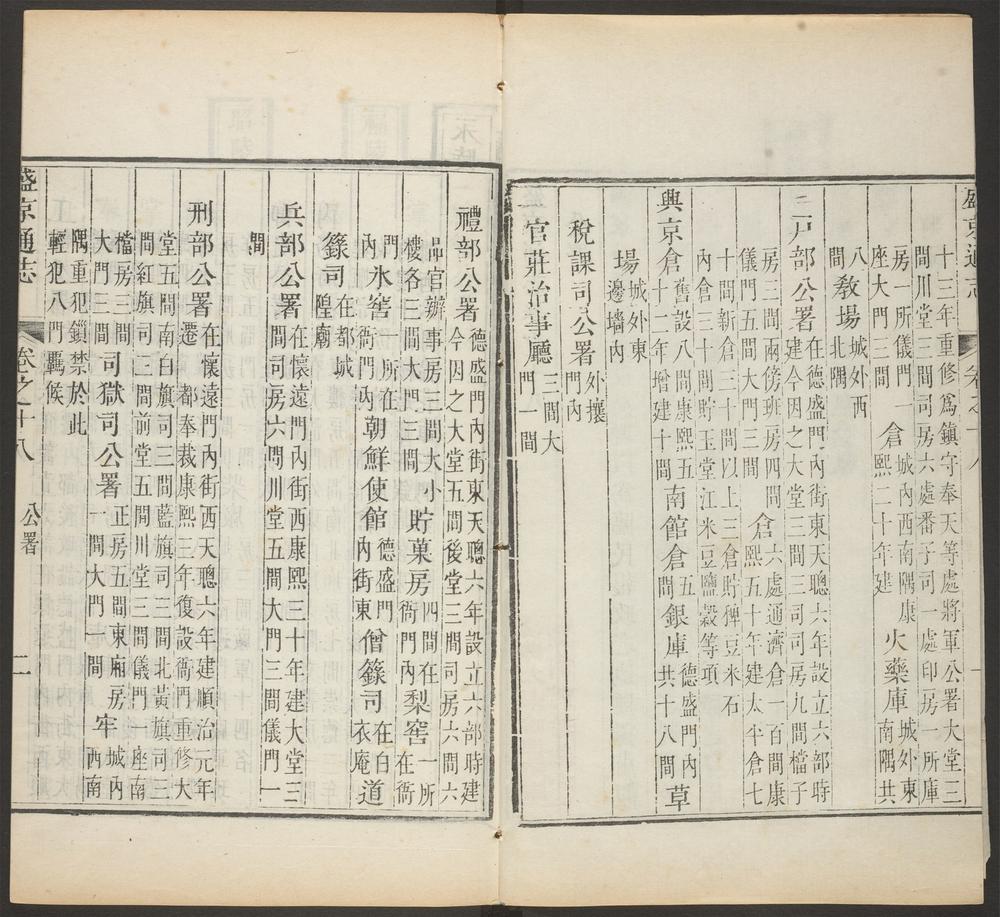 盛京通志 卷之十八 一
十三年重修爲鎮守奉天等處將軍公署大堂三
間川堂三間司房六處番子司一處印房一所庫
房一所儀門一座大門三間 倉城內西南隅康熙二十年建 火藥庫城外東南隅共
八間 教場城外西北隅
戶部公署在德盛門內街東天聰六年設立六部時
建今因之大堂三間三司司房九間檔子
房三間兩傍班房四間儀門五間大門三間 倉六處通濟倉一百間康熙五十年建太平倉七
十間新倉三十間以上三倉貯稗豆米石
內倉三十間貯玉堂江米豆鹽穀等項
興京倉舊設八間康熙五十二年增建十間 南館倉五間 銀庫德盛門內共十八間 草
場城外東邊墻內
稅課司公署外攘門內
官莊治事廳三間大門一間
禮部公署德盛門內街東天聰六年設立六部時建
今因之大堂五間後堂三間司房六間六
品官辦事房三間大小樓各三間大門三間 貯菓房四間在衙門內 梨窖一所在衙
門內 氷窖一所在衙門內 朝鮮使館德盛門內街東 僧籙司在白衣庵 道
籙司在都城隍廟
兵部公署在懷遠門內街西康熙三十年建大堂三
間司房六間川堂五間大門三間儀門一
間
刑部公署在懷遠門內街西天聰六年建順治元年
遷 都奉裁康熙三年復設衙門重修大
堂五間南白旗司三間藍旗司三間北黃旗司三
間紅旗司三間前堂五間川堂三間儀門一座南
檔房三間大門三間 司獄司公署正房五間東廂房一間大門一間 牢城內西南
隅重犯鎖禁於此
輕犯八門羈候
盛京通志 卷之十八 公署 二